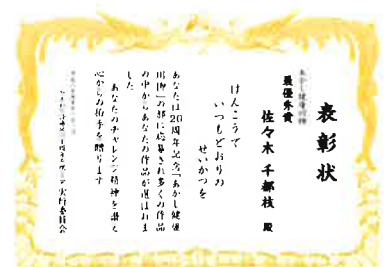 表彰状
あかし健康川柳
最優秀賞
佐々木 千都枝 殿
けんこうで
いつもどおりの
せいかつを
あなたは20周年記念「あかし健康
川柳」の部に応募され多くの作品
の中からあなたの作品が選ばれま
した
あなたのチャレンジ精神を讃え
心からの拍手を贈ります
実行委員会